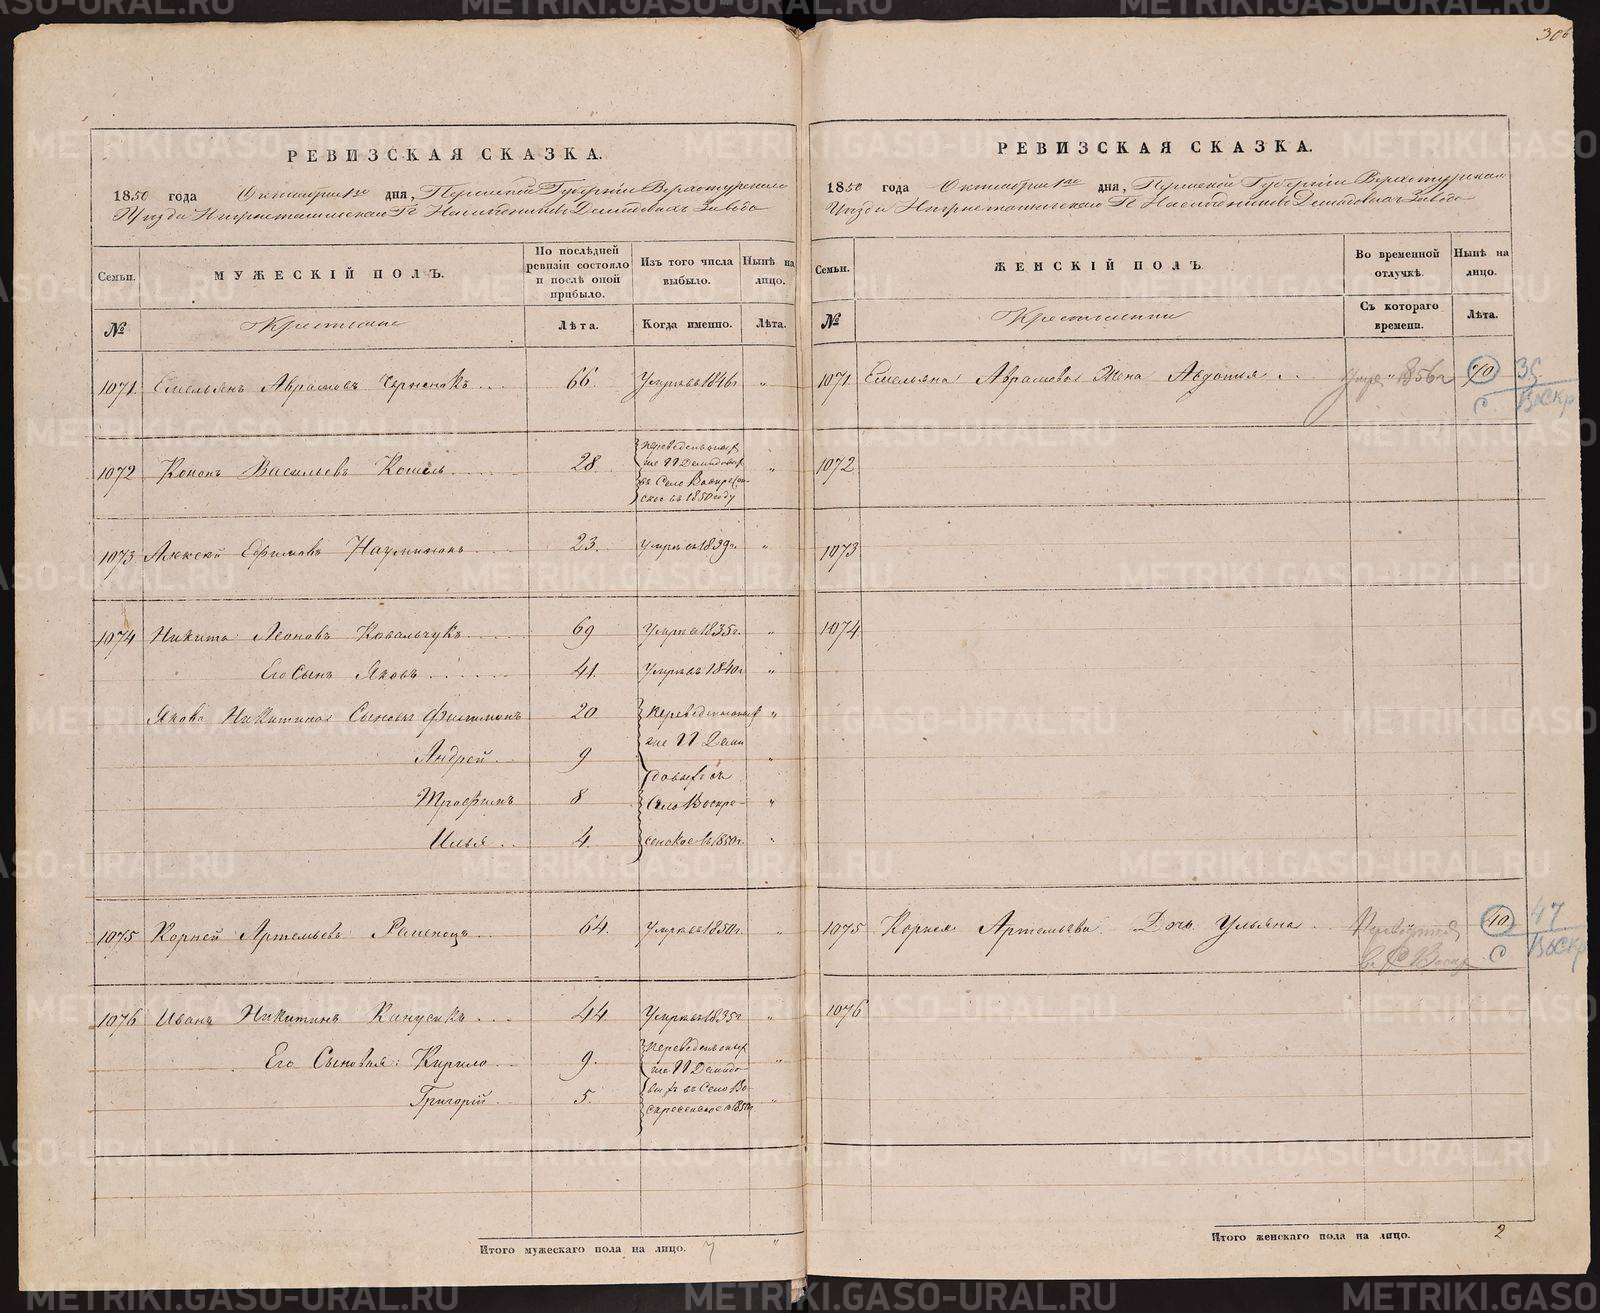 306
РЕВИЗСКАЯ СКАЗКА.
1850 года Октября 1го дня, Пермской Губернiи Верхотурскаго
Уѣзда Нижнетагильскаго Гг Наслѣдниковъ Демидовыхъ Завода
Семьи.
МУЖЕСКІЙ ПОЛЪ.
По послѣдней ревизіи состояло и послѣ оной прибыло.
Изъ того числа выбыло.
Нынѣ на лицо.
№
Крестьяне
Лѣта.
Когда именно.
Лѣта.
1071 Емельянъ Аврамовъ 66. Умеръ въ 1846г "
1072 Кононъ Васильевъ Кошель 28 Переведенъ
Гг Демидовых
въ Село Воскресен-
ское въ 1850 году "
1073 Алексѣй Ефимовъ 23. Умеръ въ 1839г. "
1074 Никита Леоновъ Ковальчукъ 69 Умеръ въ 1835г. "
Его Сынъ Яковъ 41. Умеръ въ 1840г "
Якова Никитина Сыновья Филимонъ 20 Переведены "
Андрей 9 Гг Деми "
довых въ
Трофимъ 8 Село Воскре- "
Илья 4. сенское въ 1850г. "
1075 Корней Артемьевъ Рапенецъ 64. Умеръ въ 1850г. "
1076 Иванъ Никитинъ Канусикъ 44. Умеръ въ 1835г "
Его Сыновья: Кирило 9. Переведены
Гг Демидо- "
Григорій 5. выхъ въ Село Во-
скресенское в 1850г. "
Итого мужескаго пола на лицо. "
РЕВИЗСКАЯ СКАЗКА.
1850 года Октября 1го дня, Пермской Губернiи Верхотурскаго
Уѣзда Нижнетагильскаго Гг Наслѣдниковъ Демидовыхъ Завода
Семьи.
ЖЕНСКІЙ ПОЛЪ.
Во временной отлучкѣ.
Нынѣ на лицо.
№
Крестьянки
Съ котораго времени.
Лѣта.
1071. Емельяна Аврамова Жена Авдотья 1856г 70 35
С Воскр
1072
1073
1074
1075 Корнея Артемьева Дочь Ульяна 40 47
в С Воскр С Воскр
1076
Итого женскаго пола на лицо. 2
METRIKI.GASO-URAL.RU